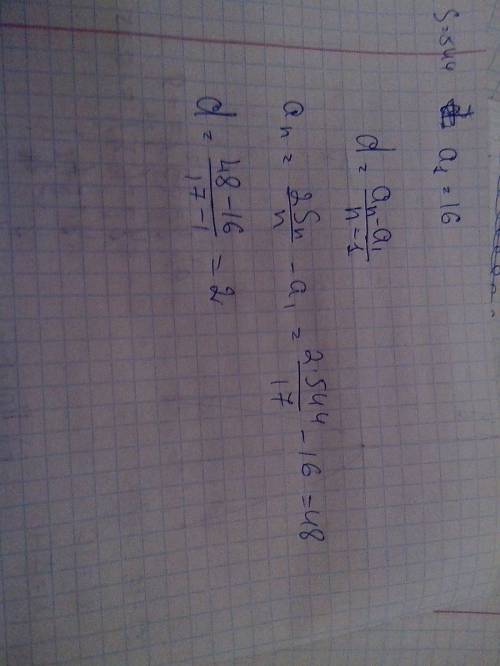 S=544 a₁ = 16
d = \frac{aₙ-a₁}{n-1}
aₙ = \frac{2Sₙ}{n} - a₁ = \frac{2·544}{17} - 16 = 48
d = \frac{48-16}{17-1} = 2